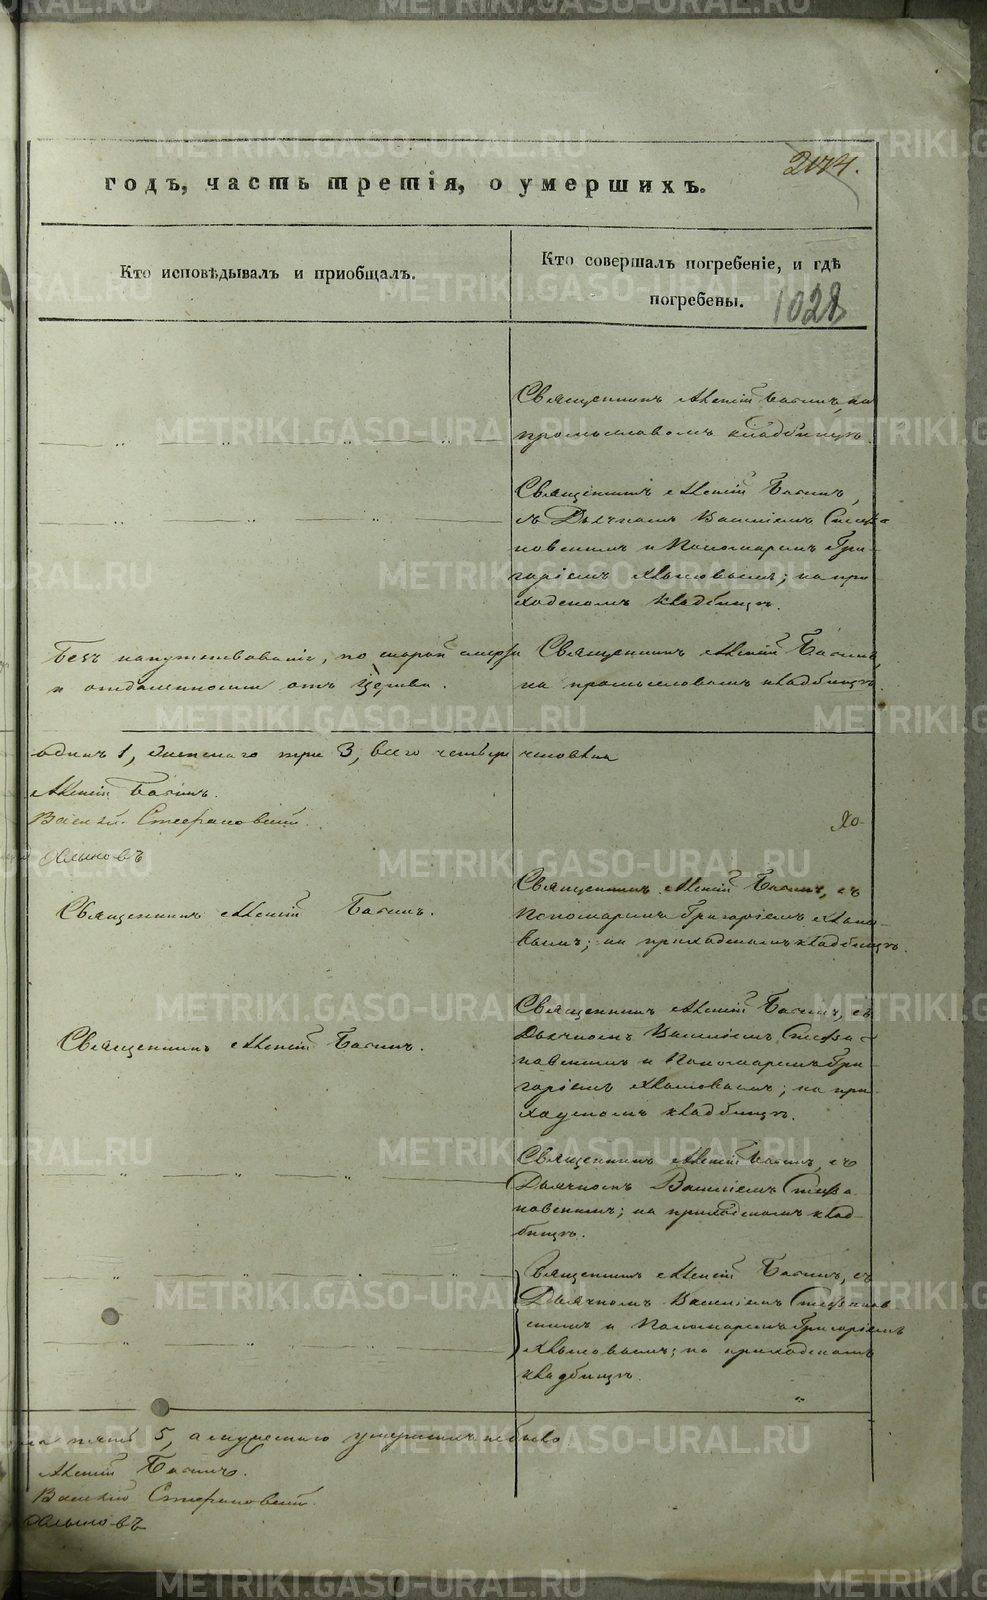 годъ, часть третія, о умершихъ.
1028
Кто исповѣдывалъ и приобщалъ.
Кто совершалъ погребеніе, и гдѣ
погребены.
Священникъ Алексій на
промысловомъ кладбищѣ.
Священникъ Алексій
съ Дьячкомъ Василіемъ Стефа-
новскимъ и Пономаремъ Гри-
горіемъ на при-
ходскомъ кладбищѣ.
Безъ напутствованія, по скорой смерти
и отдаленности отъ Церкви.
Священникъ Алексій
на промысловомъ кладбищѣ.
одинъ 1, женскаго три 3, всего четыре человѣка
Алексій
Василій Стефановскій
Священникъ Алексій
Священникъ Алексій съ
Пономаремъ Григоріемъ
на приходскомъ кладбищѣ.
Священникъ Алексій
Священникъ Алексій съ
Дьячкомъ Василіемъ Стефа-
новскимъ и Пономаремъ Гри-
горіемъ на при-
ходскомъ кладбищѣ.
Священникъ Алексій съ
Дьячкомъ Василіемъ Стефа
новскимъ; на приходскомъ клад-
бищѣ.
Священникъ Алексій съ
Дьячкомъ Василіемъ Стефанов
скимъ и Пономаремъ Григоріемъ
на приходскомъ
кладбищѣ.
пять 5, а мужескаго умершихъ не было
Алексій
Василій Стефановскій
METRIKI.GASO-URAL.RU